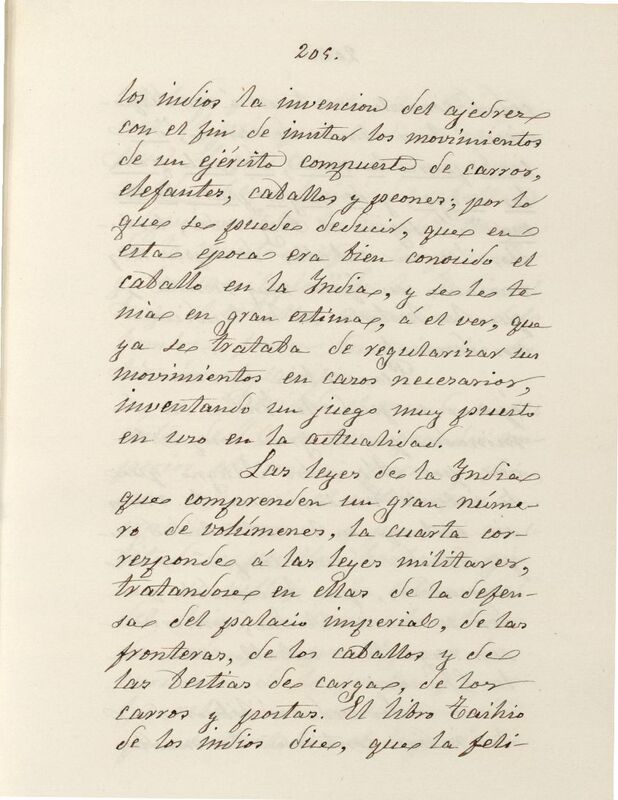 205.
los indios la invencion del ajedrez
con el fin de imitar los movimientos
de un ejército compuesto de carros,
elefantes, caballos y peones; por lo
que se puede deducir, que en
esta época era bien conocido el
caballo en la India, y se le te-
nia en gran estima, á el ver, que
ya se trataba de regularizar sus
movimientos en casos necesarios,
inventando un juego muy puesto
en uso en la actualidad.
Las leyes de la India
que comprenden un gran núme-
ro de volúmenes, la cuarta cor-
responde á las leyes militares,
tratandose en ellas de la defen-
sa del palacio imperial, de las
fronteras, de los caballos y de
las bestias de carga, de los
carros y postas. El libro
de los indios dice, que la feli-